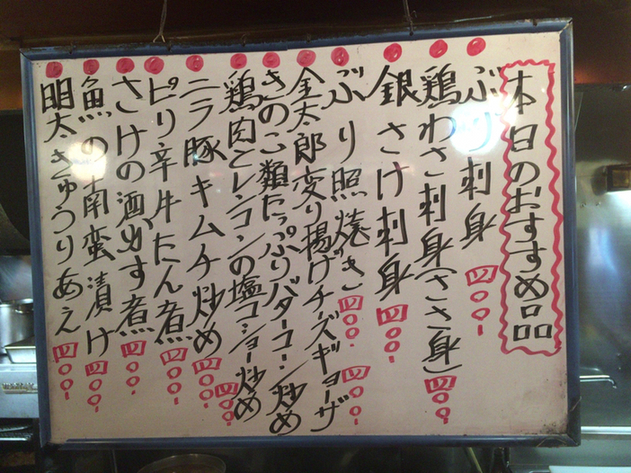 本日のおすすめ品
ぶり刺身 四〇〇-
鶏わさ刺身(ささ身) 四〇〇-
銀さけ刺身 四〇〇-
ぶり照焼き 四〇〇- 四〇〇-
金太郎変り揚げチーズギョーザ
きのこ類たっぷりバターコーン炒め
鶏肉とレンコンの塩コショー炒め 四〇〇-
ニラ豚キムチ炒め 四〇〇-
ピリ辛牛たん煮 四〇〇-
さけの酒かす煮 四〇〇-
魚の南蛮漬け 四〇〇-
明太きゅうりあえ 四〇〇-